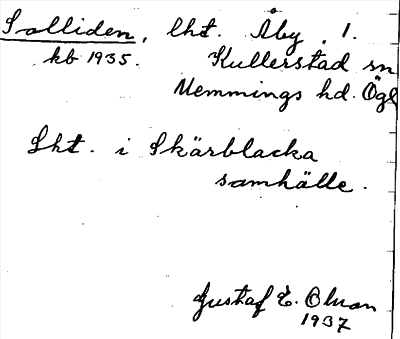 Solliden, lht. Åby 1.
kb 1935. Kullerstad sn
Memmings hd. Ögl
Lht. i Skärblacka
samhälle.
Gustaf E. Olson
1937